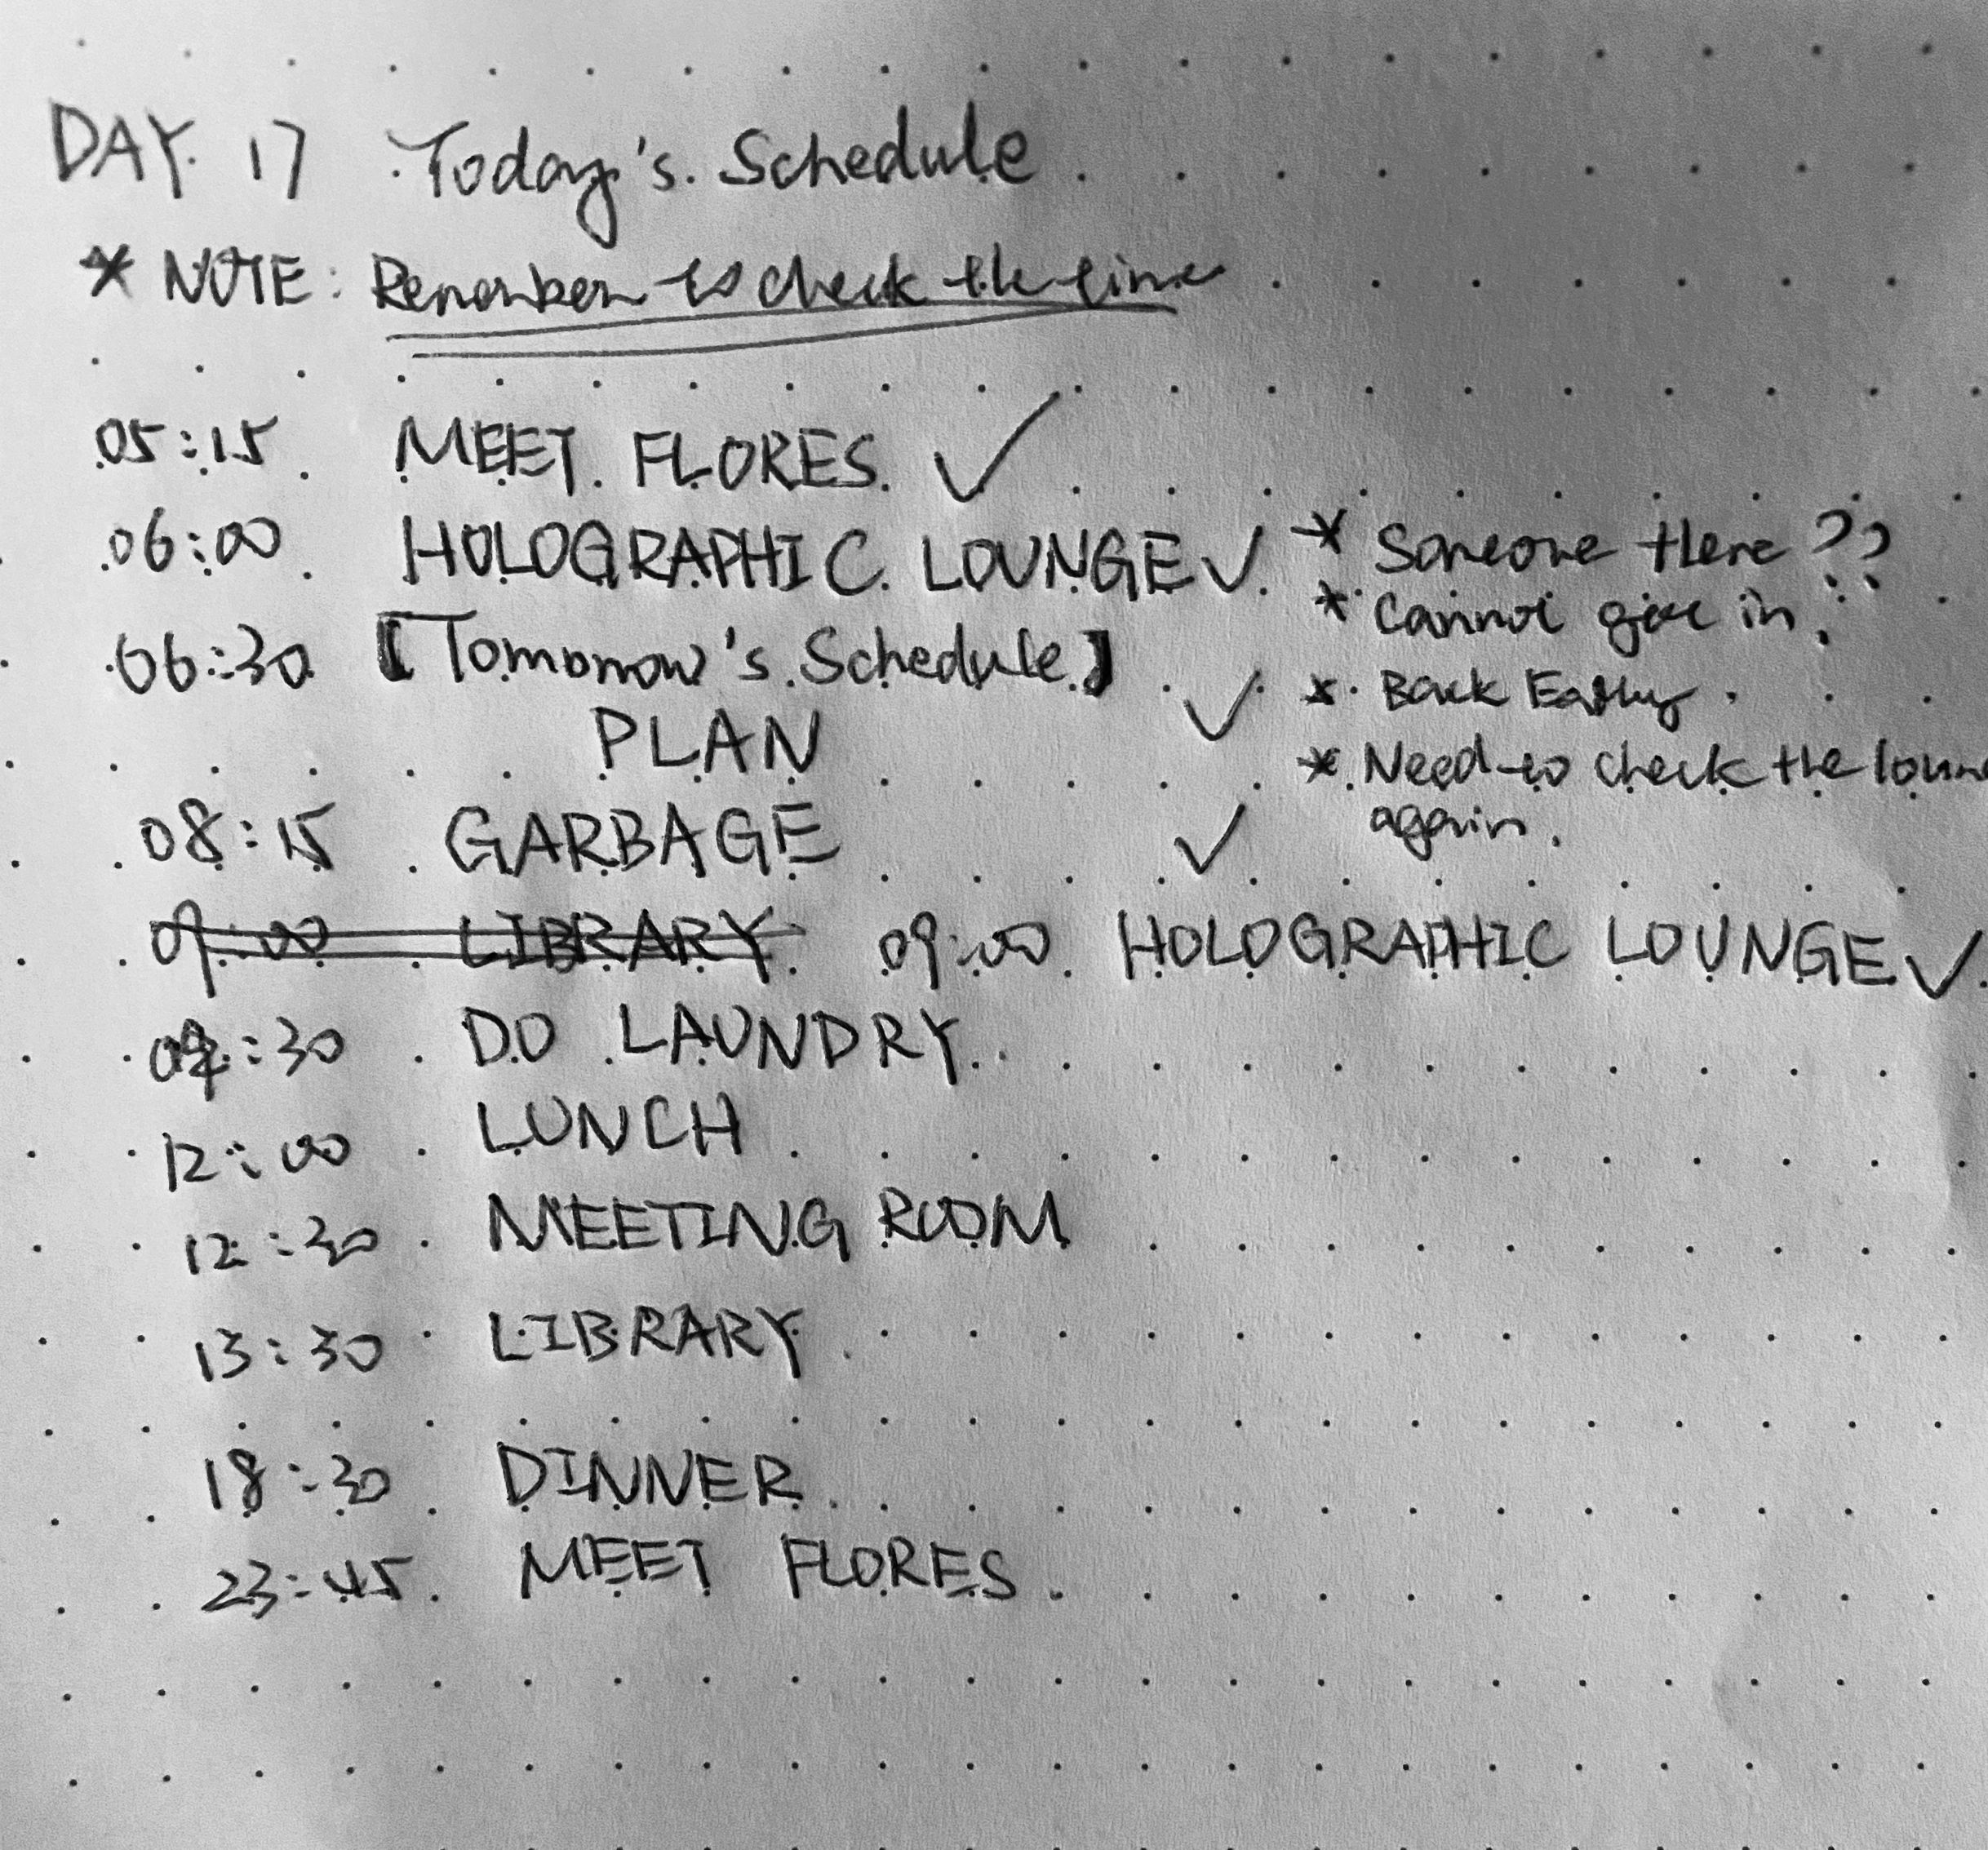 DAY 17 Today's Schedule
* NOTE: Remember to check the time
05:15 MEET FLORES ✓
06:00 HOLOGRAPHIC LOUNGE ✓ * Someone there??
* Cannot give in.
06:30 【Tomorrow's Schedule】
PLAN ✓ * Back Early.
* Need to check the
again.
08:15 GARBAGE ✓
09:00 LIBRARY 09:00 HOLOGRAPHIC LOUNGE ✓
:30 DO LAUNDRY
12:00 LUNCH
12:30 MEETING ROOM
13:30 LIBRARY
18:30 DINNER
23:45 MEET FLORES